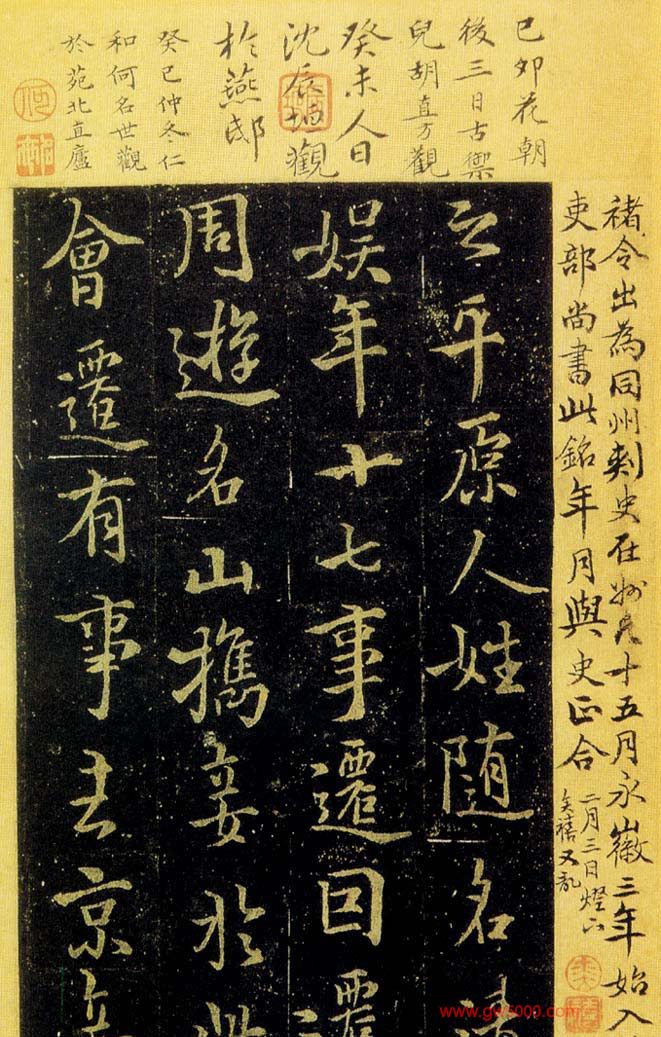 己卯花朝
後三日古禦
兒胡直方觀
癸未人日
沈辰垣觀
於燕邸
癸巳仲冬仁
和何名世觀
於苑北直廬
褚令出為同州刺史在州凡十五月永徽三年始入
吏部尚書此銘年月與史正合
二月三日燈下
奕禧又記
之平原人姓隨名清
娛年十七事遷囙遷
周遊名山攜妾於此
會遷有事去京妾
www.gw5000.com